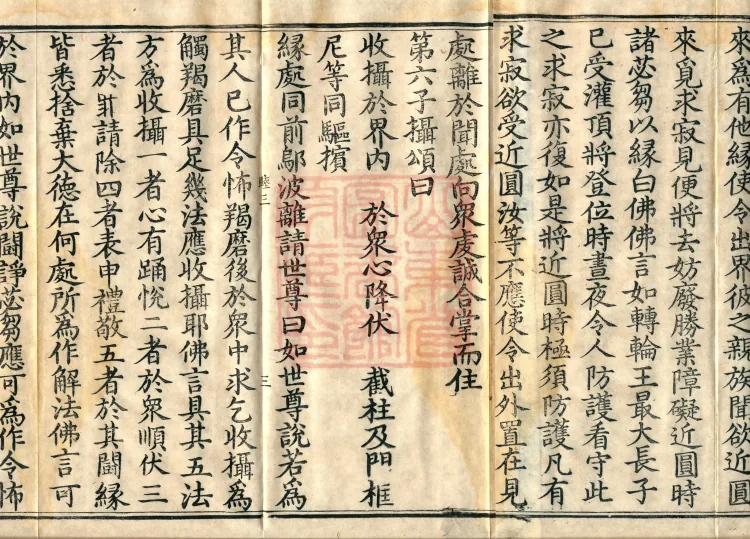 來爲有他緣使令出界彼之親族聞欲近圓
來覓求寂見便將去妨廢勝業障礙近圓時
諸苾芻以緣白佛佛言如轉輪王最大長子
已受灌頂將登位時晝夜令人防護看守此
之求寂亦復如是將近圓時極須防護凡有
求寂欲受近圓汝等不應使令出外置在見
處離於聞處向衆虔誠合掌而住
第六子攝頌曰
收攝於界內 於衆心降伏 截柱及門框
尼等同驅擯
緣處同前鄔波離請世尊曰如世尊說若爲
睦三 三
其人已作令怖羯磨後於衆中求乞收攝爲
觸羯磨具足幾法應收攝耶佛言具其五法
方爲收攝一者心有踊悅二者於衆順伏三
者於此請除四者表申禮敬五者於其鬪緣
皆悉捨棄大德在何處所爲作解法佛言可
於界內如世尊說鬪諍苾芻應可爲作令怖